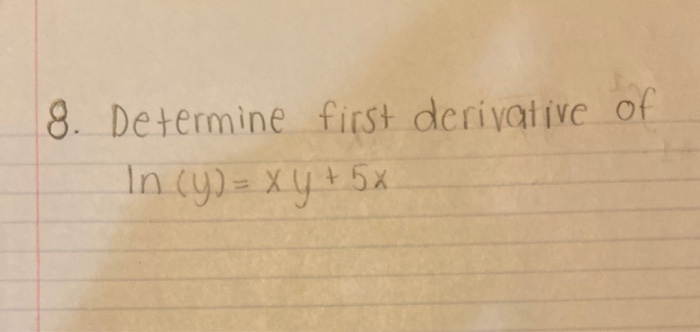 8. Determine first derivative of
ln (y) = xy + 5x